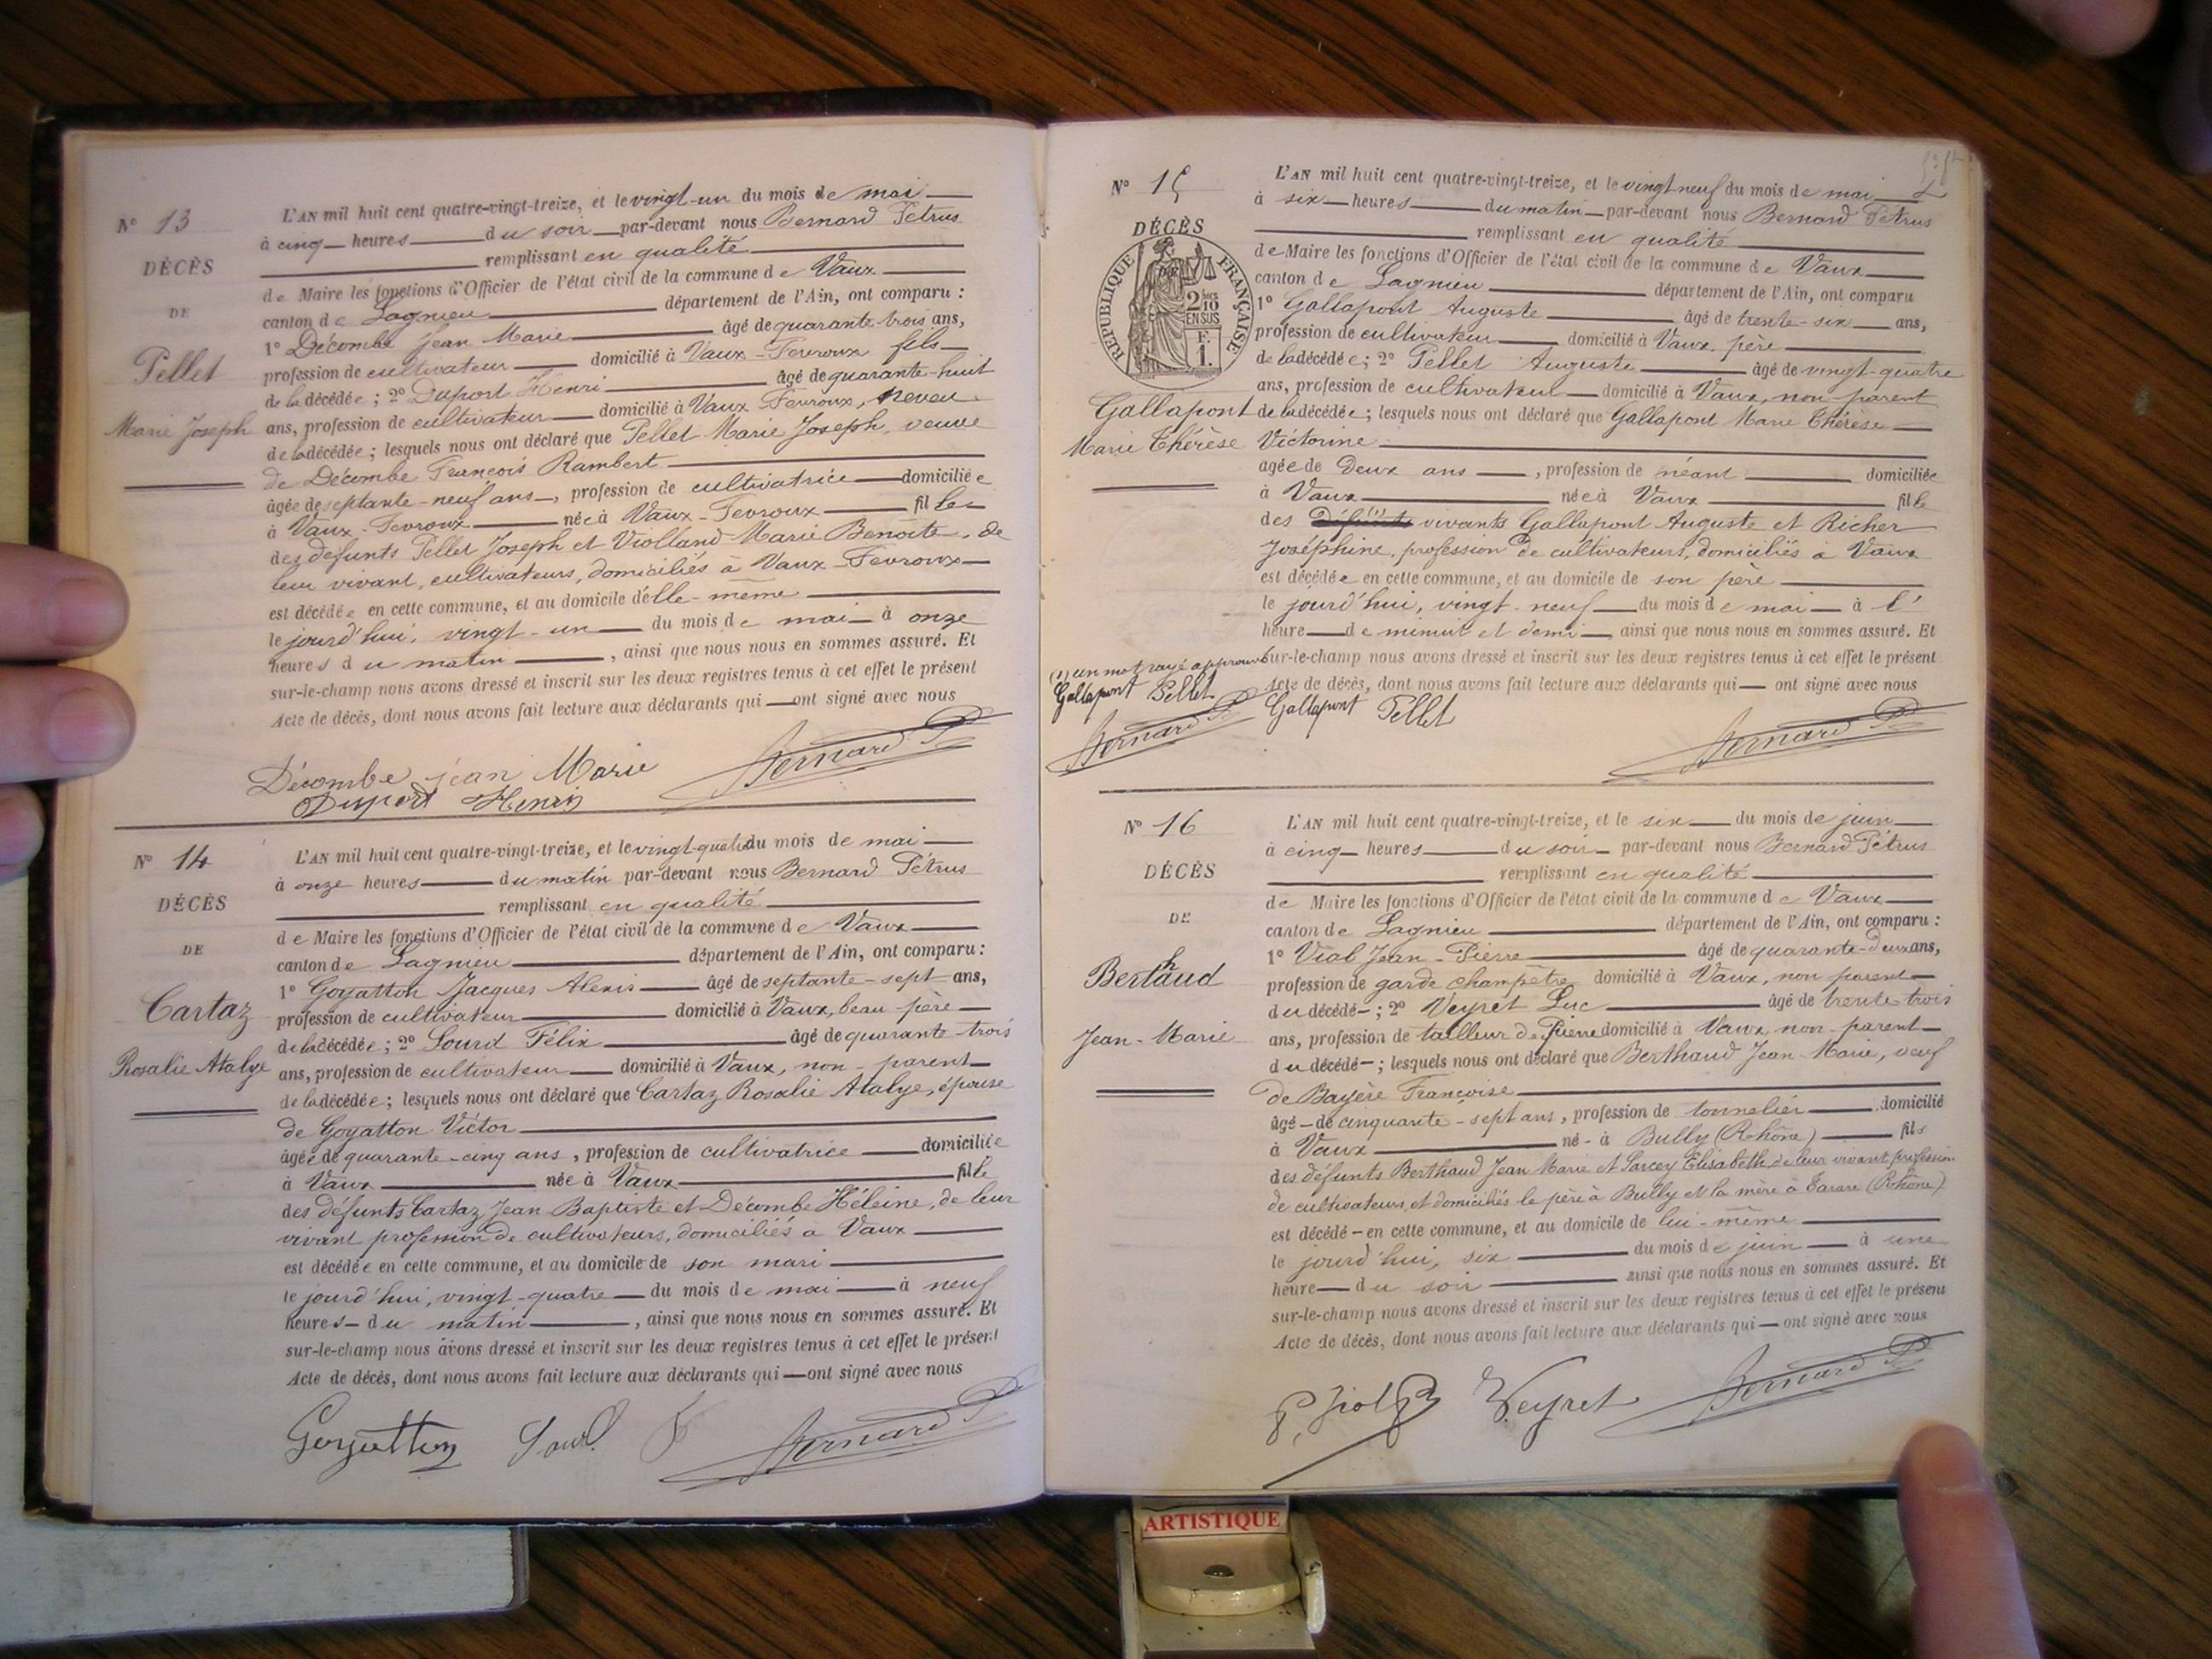 N° 13
DÉCÈS
DE
Pellet
Marie Joseph
L'AN mil huit cent quatre-vingt-treize, et le vingt-un du mois de mai
à cinq heures du soir par-devant nous Bernard Pétrus
remplissant en qualité
de Maire les fonctions d'Officier de l'état civil de la commune de Vaux
canton de Lagnieu département de l'Ain, ont comparu :
1° Décombe Jean Marie âgé de quarante-trois ans,
profession de cultivateur domicilié à Vaux-Fevroux fils
de la décédée ; 2° Duport Henri âgé de quarante-huit
ans, profession de cultivateur domicilié à Vaux Fevroux, neveu
de la décédée ; lesquels nous ont déclaré que Pellet Marie Joseph, veuve
de Décombe François Rambert
âgée de septante-neuf ans, profession de cultivatrice domiciliée
à Vaux-Fevroux née à Vaux-Fevroux fille
des défunts Pellet Joseph et Violland Marie Benoîte, de
leur vivant, cultivateurs, domiciliés à Vaux-Fevroux
est décédée en cette commune, et au domicile d'elle-même
le jourd'hui, vingt-un du mois de mai à onze
heures du matin, ainsi que nous nous en sommes assuré. Et
sur-le-champ nous avons dressé et inscrit sur les deux registres tenus à cet effet le présent
Acte de décès, dont nous avons fait lecture aux déclarants qui ont signé avec nous
Décombe jean Marie
Duport Henri
Bernard P
N° 14
DÉCÈS
DE
Cartaz
Rosalie Atalye
L'AN mil huit cent quatre-vingt-treize, et le vingt-quatre du mois de mai
à onze heures du matin par-devant nous Bernard Pétrus
remplissant en qualité
de Maire les fonctions d'Officier de l'état civil de la commune de Vaux
canton de Lagnieu département de l'Ain, ont comparu :
1° Goyatton Jacques Alexis âgé de septante-sept ans,
profession de cultivateur domicilié à Vaux, beau-père
de la décédée ; 2° Sourd Félix âgé de quarante-trois
ans, profession de cultivateur domicilié à Vaux, non-parent
de la décédée ; lesquels nous ont déclaré que Cartaz Rosalie Atalye, épouse
de Goyatton Victor
âgée de quarante-cinq ans, profession de cultivatrice domiciliée
à Vaux née à Vaux fille
des défunts Cartaz Jean Baptiste et Décombe Héleine, de leur
vivant profession de cultivateurs, domiciliés à Vaux
est décédée en cette commune, et au domicile de son mari
le jourd'hui, vingt-quatre du mois de mai à neuf
heures du matin, ainsi que nous nous en sommes assuré. Et
sur-le-champ nous avons dressé et inscrit sur les deux registres tenus à cet effet le présent
Acte de décès, dont nous avons fait lecture aux déclarants qui ont signé avec nous
Goyatton
Bernard P
N° 15
DÉCÈS
RÉPUBLIQUE FRANÇAISE
2/10
EN SUS
F.
1.
Gallapont
Marie Thérèse
L'AN mil huit cent quatre-vingt-treize, et le vingt-neuf du mois de mai
à six heures du matin par-devant nous Bernard Pétrus
remplissant en qualité
de Maire les fonctions d'Officier de l'état civil de la commune de Vaux
canton de Lagnieu département de l'Ain, ont comparu
1° Gallapont Auguste âgé de trente-six ans,
profession de cultivateur domicilié à Vaux, père
de la décédée ; 2° Pellet Auguste âgé de vingt-quatre
ans, profession de cultivateur domicilié à Vaux, non parent
de la décédée ; lesquels nous ont déclaré que Gallapont Marie Thérèse
Victorine
agée de deux ans, profession de néant domiciliée
à Vaux née à Vaux fille
des défunts vivants Gallapont Auguste et Richer
Joséphine, profession de cultivateurs, domiciliés à Vaux
est décédée en cette commune, et au domicile de son père
le jourd'hui, vingt-neuf du mois de mai à l'
heure de minuit et demi, ainsi que nous nous en sommes assuré. Et
sur-le-champ nous avons dressé et inscrit sur les deux registres tenus à cet effet le présent
Acte de décès, dont nous avons fait lecture aux déclarants qui ont signé avec nous
(1) un mot rayé approuvé
Gallapont Pellet
Bernard P
Gallapont Pellet
Bernard P
N° 16
DÉCÈS
DE
Berthaud
Jean-Marie
L'AN mil huit cent quatre-vingt-treize, et le six du mois de juin
à cinq heures du soir par-devant nous Bernard Pétrus
remplissant en qualité
de Maire les fonctions d'Officier de l'état civil de la commune de Vaux
canton de Lagnieu département de l'Ain, ont comparu :
1° Vial Jean-Pierre âgé de quarante-deux ans,
profession de garde champêtre domicilié à Vaux, non parent
du décédé ; 2° Veyret Luc âgé de trente-trois
ans, profession de tailleur de Pierre domicilié à Vaux, non-parent
du décédé ; lesquels nous ont déclaré que Berthaud Jean-Marie, veuf
de Bayère Françoise
âgé de cinquante-sept ans, profession de tonnelier domicilié
à Vaux né à Bully (Rhône) fils
des défunts Berthaud Jean Marie et Sarcey Elisabeth, de leur vivant profession
de cultivateurs, et domiciliés le père à Bully et la mère à Tarare (Rhône)
est décédé en cette commune, et au domicile de lui-même
le jourd'hui, six du mois de juin à une
heure du soir ainsi que nous nous en sommes assuré. Et
sur-le-champ nous avons dressé et inscrit sur les deux registres tenus à cet effet le présent
Acte de décès, dont nous avons fait lecture aux déclarants qui ont signé avec nous
Veyret
Bernard P
ARTISTIQUE